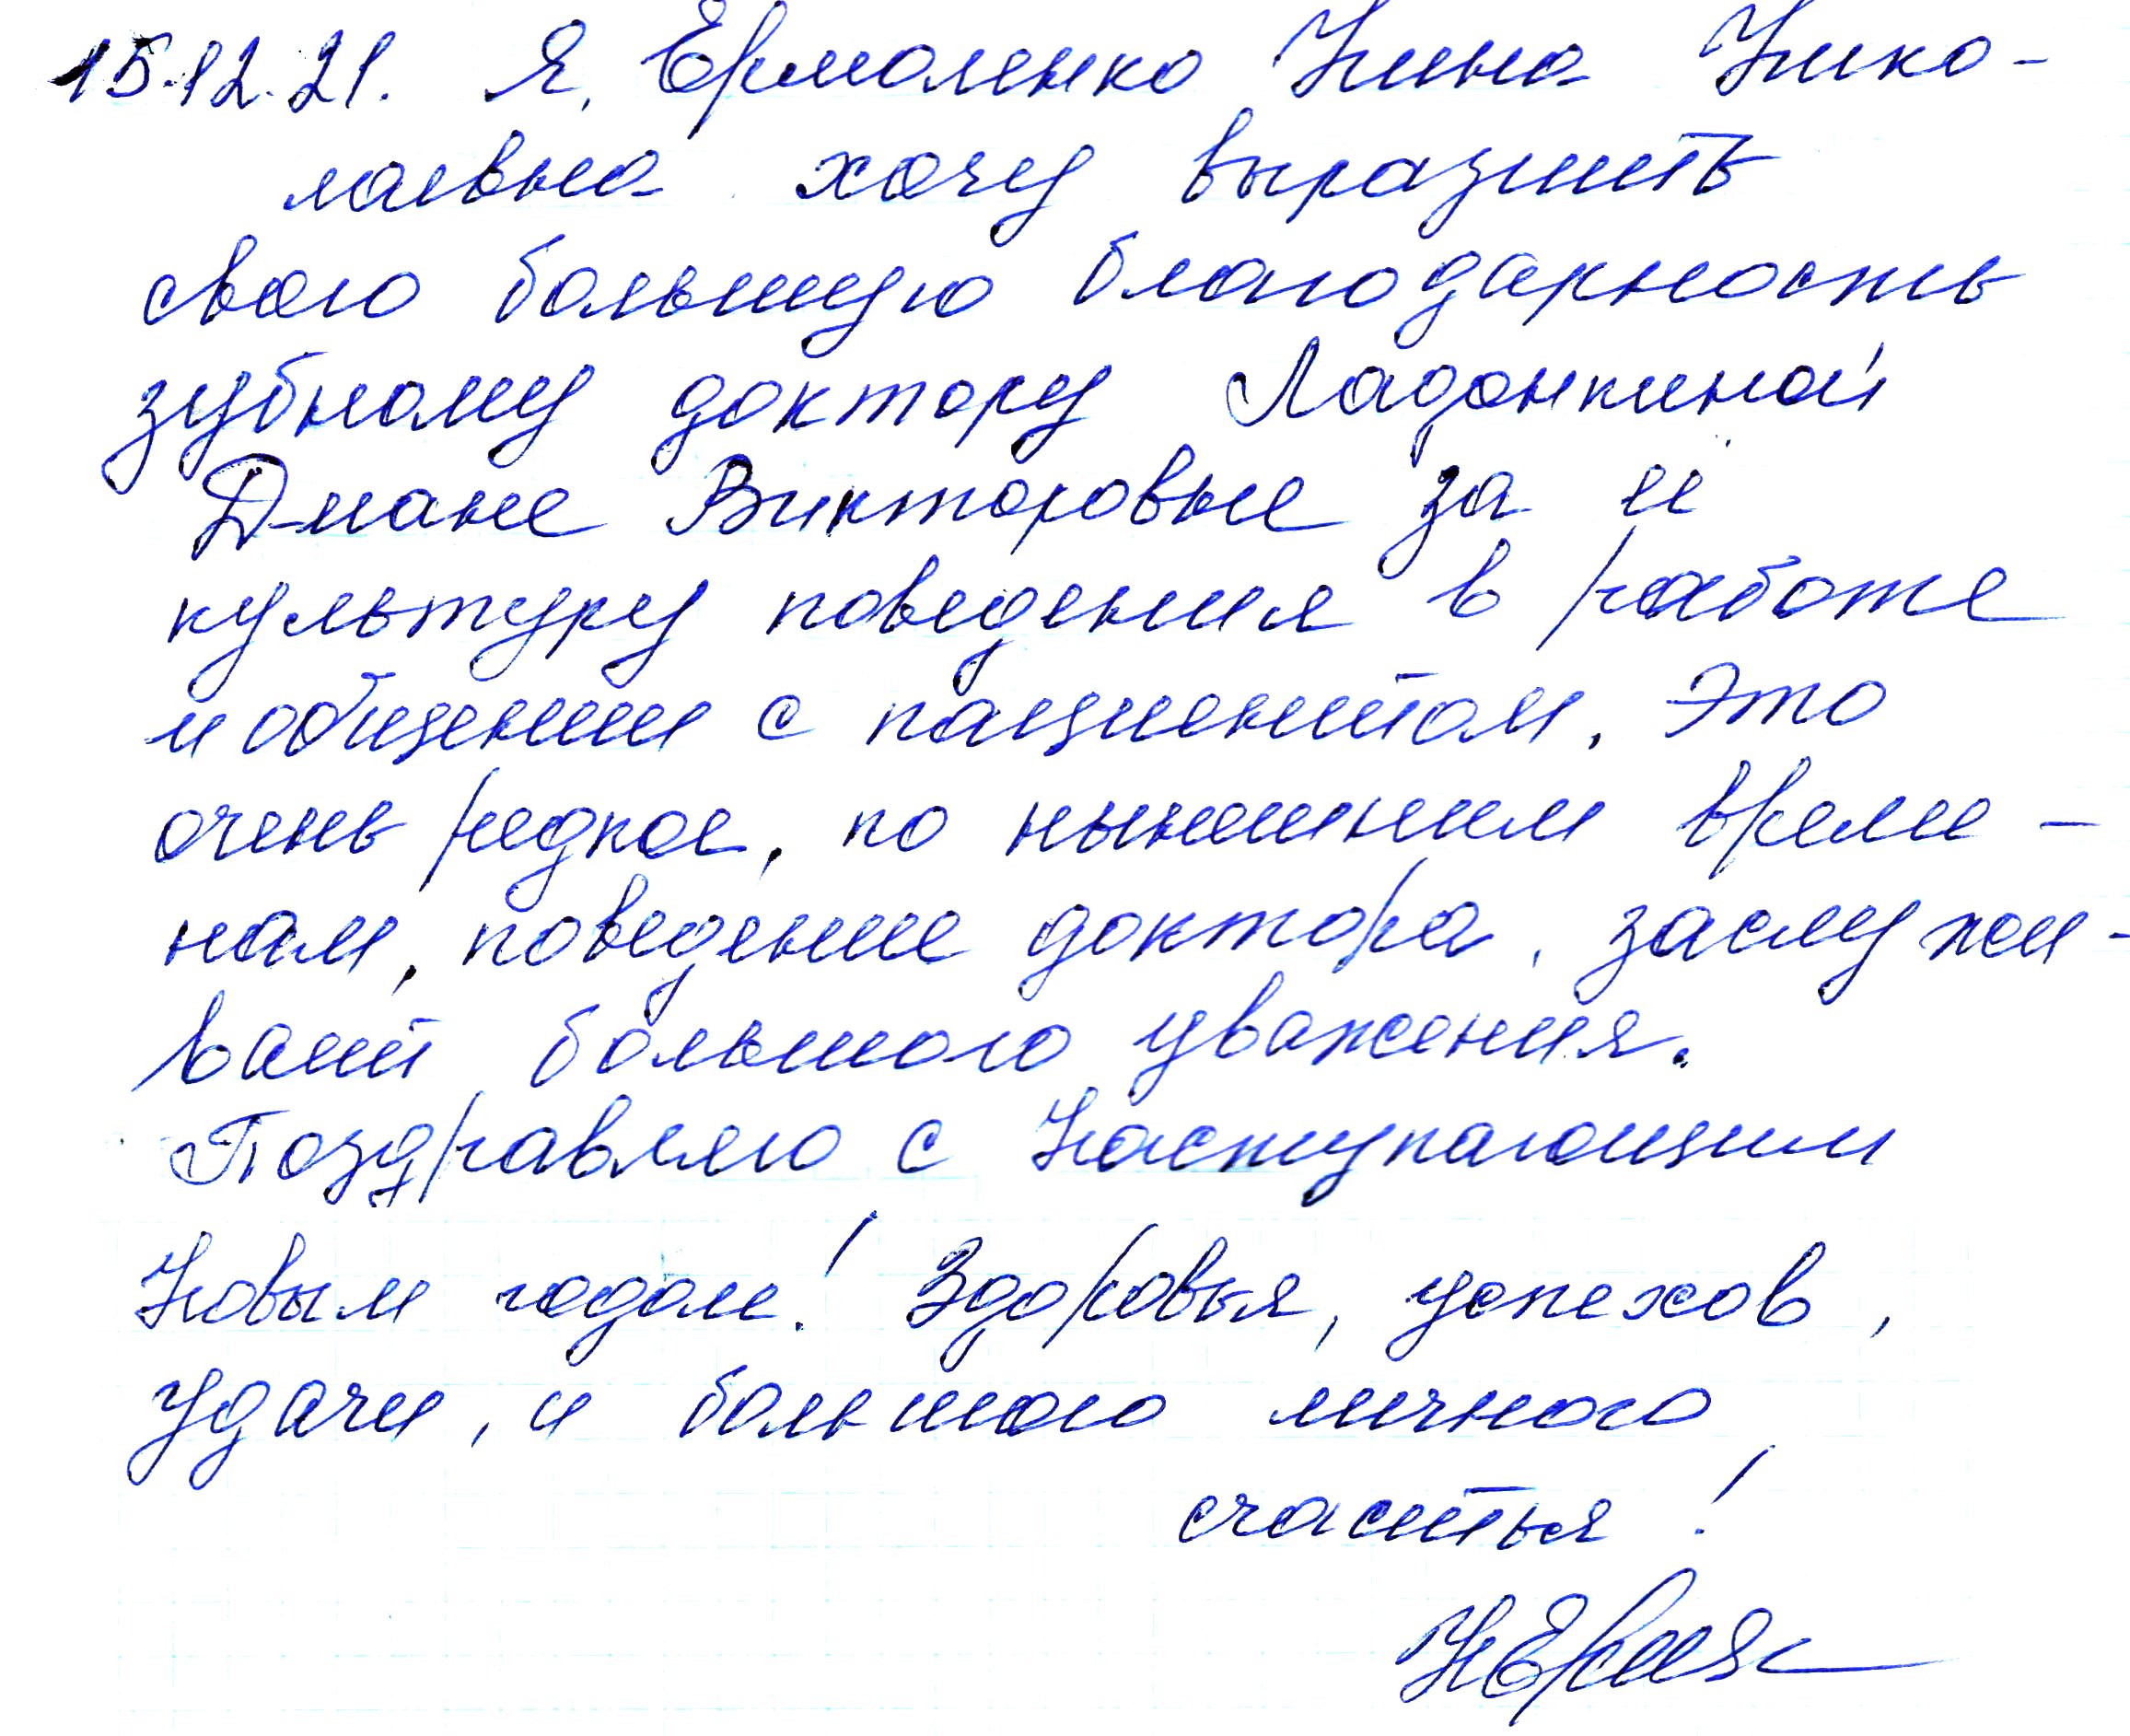 15.12.21. Я, Ермоленко Нина Нико-
лаевна хочу выразить
свою большую благодарность
зубному доктору Ладонкиной
Диане Викторовне за и
культуру поведения в работе
и общении с пациентом. Это
очень редкое, по нынешним време-
нам, поведение доктора, заслужи-
вает большого уважения.
Поздравляю с Наступающим
Новым годом! Здоровья, успехов,
удачи, и большого личного
счастья!